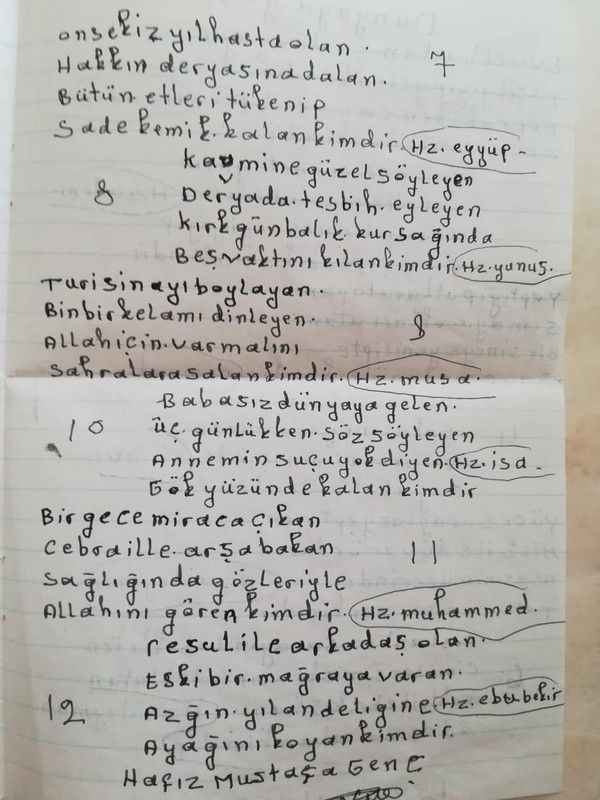 onsekiz yıl hasta olan.
Hakkın deryasına dalan. 7
Bütün etleri tükenip
Sade kemik kalan kimdir. Hz. eyyüp -
Kavmine güzel söyleyen
8 Deryada. tesbih. eyleyen
Kırk gün balık kursağında
Beş vaktını kılan kimdir. Hz. yunus.
Turisinayı boylayan.
Binbir kelamı dinleyen. 8
Allah için. varmalını
Sahralara salan kimdir. Hz. musa.
Babasız dünyaya gelen.
10 üç. günlükken. söz söyleyen
Annemin suçu yok diyen. Hz. isa -
Gök yüzünde kalan kimdir
Bir gece miraca çıkan
Cebraille. arşa bakan 11
Sağlığında gözleriyle
Allahını gören kimdir. Hz. muhammed.
resul ile arkadaş olan.
Eski bir. mağraya varan.
12 Azğın. yılan deligine Hz. ebubekir
Ayağını koyan kimdir.
Hafız Mustafa Genç